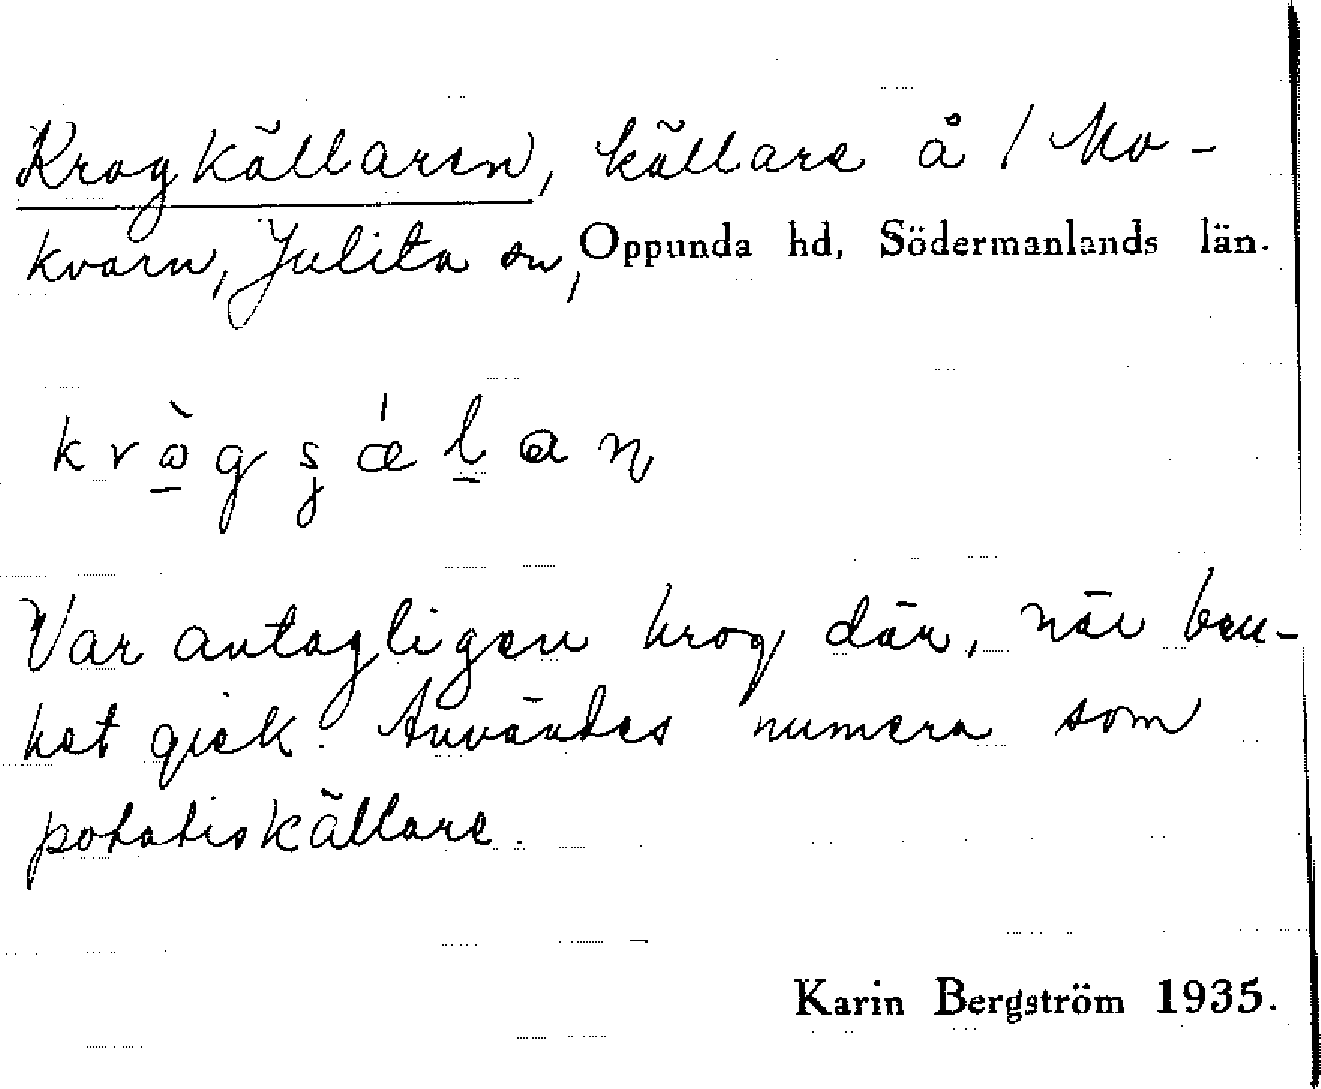 Krogkällaren, källare å / Mo-
kvarn, Julita sn, Oppunda hd, Södermanlands län.
Var antagligen krog där, när ban-
ket gick. Användes numera som
potatiskällare.
Karin Bergström 1935.